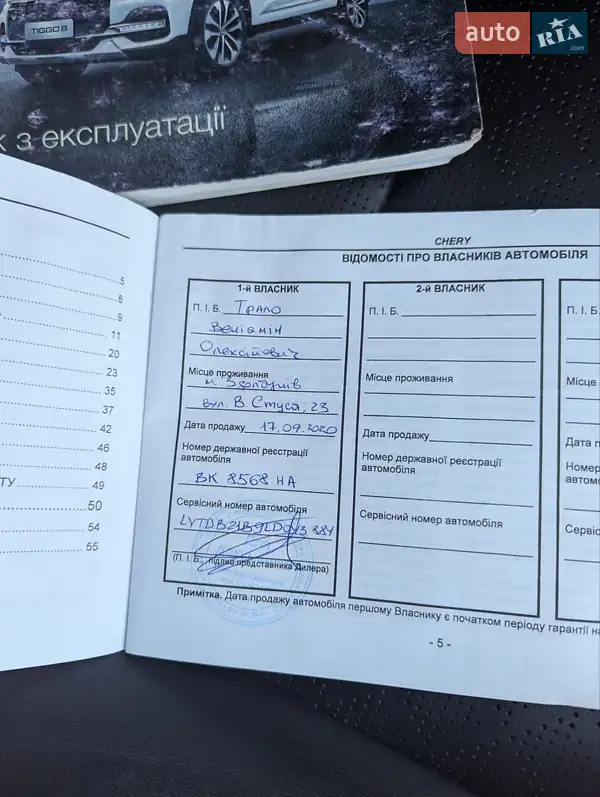 auto RIA.com
TIGGO 8
к з експлуатації
5
6
9
11
20
23
35
37
42
46
48
ТУ 49
50
54
55
CHERY
ВІДОМОСТІ ПРО ВЛАСНИКІВ АВТОМОБІЛЯ
1-й ВЛАСНИК
П. І. Б. Трало
Веніамін
Олексійович
Місце проживання
м. Здолбунів
вул. В Стуса, 23
Дата продажу 17.09.2020
Номер державної реєстрації
автомобіля
ВК 8568 НА
Сервісний номер автомобіля
(П. І. Б., підпис представника Дилера)
2-й ВЛАСНИК
П. І. Б.
Місце проживання
Дата продажу
Номер державної реєстрації
автомобіля
Сервісний номер автомобіля
П. І. Б.
Місце
Дата п
Номер
автомо
Сервіс
Примітка. Дата продажу автомобіля першому Власнику є початком періоду гарантії на
- 5 -